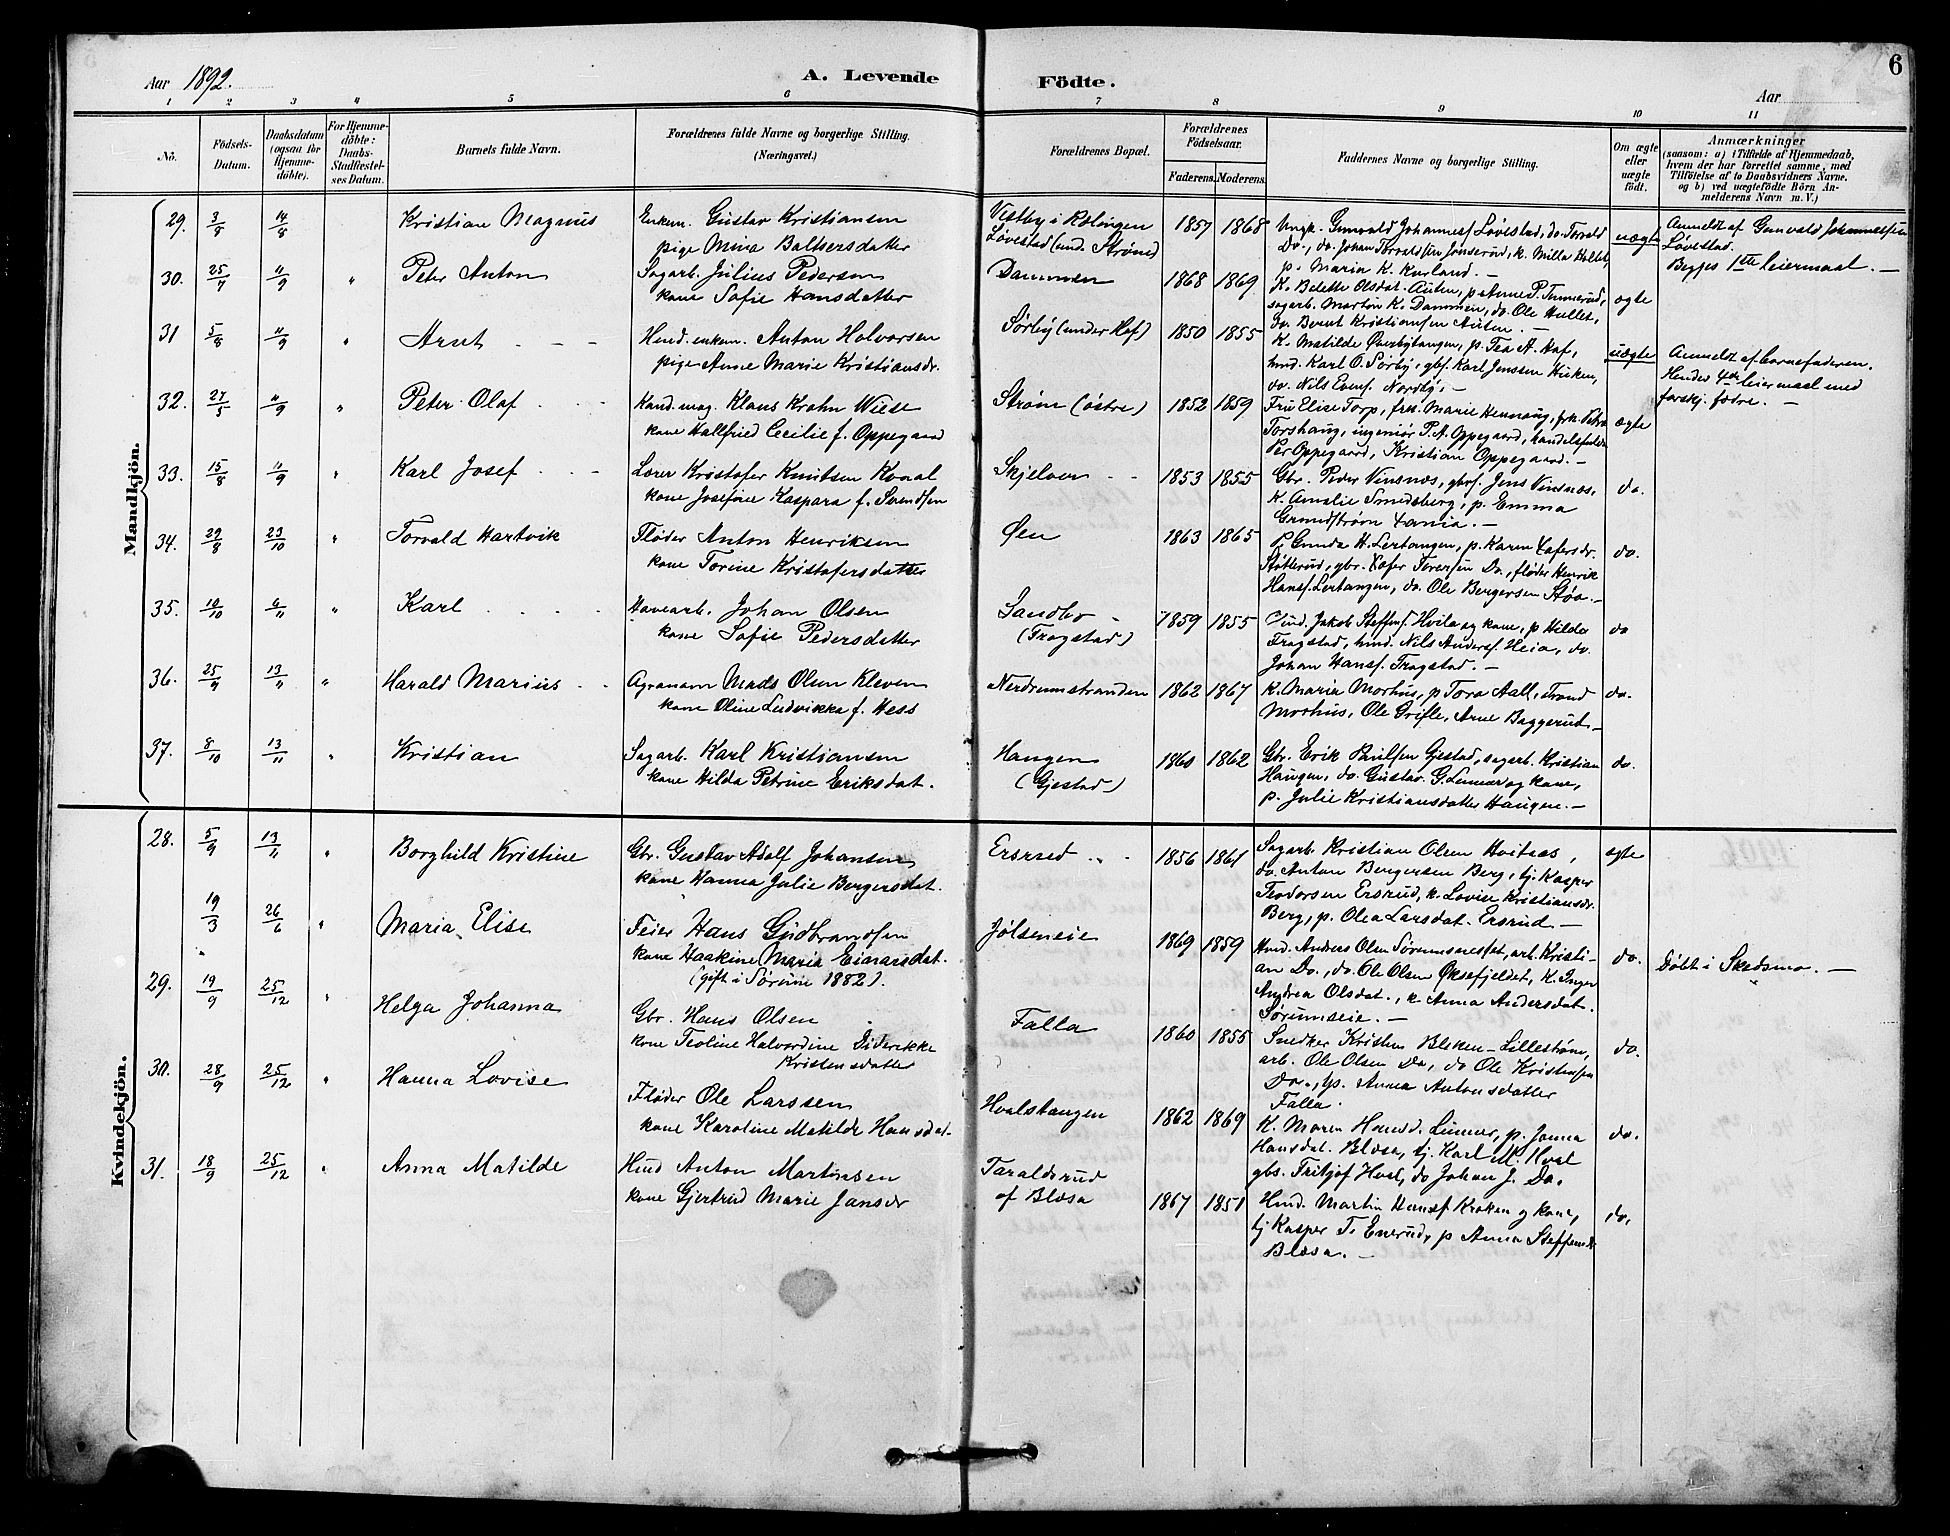 6
Aar 1892.
A. Levende
Födte.
Aar
1 2 3 4 5 6 7 8 9 10 11
No.
Födsels-
Datum.
Daabsdatum
(ogsaa for
Hjemme-
döbte).
For Hjemme-
döbte:
Daabs-
Stadfæstel-
ses Datum.
Barnets fulde Navn.
Forældrenes fulde Navne og borgerlige Stilling.
(Næringsvei.)
Forældrenes Bopæl.
Forældrenes
Födselsaar.
Faderens. Moderens.
Faddernes Navne og borgerlige Stilling.
Om ægte
eller
uægte
födt.
Anmærkninger
(saasom: a) i Tilfælde af Hjemmedaab,
hvem der har forrettet samme, med
Tilföielse af to Daabsvidners Navne.
og b) ved uægtefödte Börn An-
melderens Navn m. V.)
Mandkjön.
29. 3/8 14/8 Kristian Magnus
Enkem. Gustav Kristiansen
pige Mina Baltsersdatter
Vestby i Rølingen
Løvestad (und. Strøm)
1857 1868
Ungk. Gunvald Johannesf Løvestad, do. Torvald
Do., do. Johan Torvaldsen Jonserud, k. Milla Holtet,
p. Maria K. Kurland. —
uægte
Anmeldt af Gunvald Johannessen
Løvestad.
Begges 1ste leiermaal. —
30. 25/7 11/9 " Peter Anton
Sagarb. Julius Pedersen
kone Sofie Hansdatter
Dammen
1868 1869
K. Belette Olsdat. Auten, p Anne P. Tunnerud,
sagarb. Martin K. Dammen, do. Ole Hullet,
do. Bernt Kristiansen Auten. —
ægte
31 5/8 11/9 " Arnt
Husd. enkem. Anton Halvorsen
pige Anne Marie Kristiansdr.
Sørby (under Hof)
1850 1855
K. Matilde Øverbytangen, p. Tea A. Haf,
hmd. Karl O. Sørby, gbsf. Karl Jenssen Viken,
do. Nils Evens. Nordby, —
uægte
Anmeldt af barnefaderen.
Hendes 4de leiermaal med
forskj. fædre. —
32. 27/5 11/9 " Peter Olaf
Kand. mag. Klaus Krohn Wiese
kone Hallfried Cecilie f. Oppegaard
Strøm (østre)
1852 1859
Fru Elise Torp, frk. Marie Hennaug, frk. Petra
Torshaug, ingeniør P. A. Oppegaard,
Per Oppegaard, Kristian Oppegaard. —
ægte
33. 15/8 11/9 " Karl Josef
Lærer Kristofer Knutsen Kval
kone Josefine Kaspara f. Svendsen
Skjelver
1853 1855
Gbr. Peder Vinsnæs, gbrs. Jens Vinsnæs,
K. Amalie Smedsberg, p. Emma
Grundstrøm Xania. —
do.
34. 29/8 23/10 " Torvald Hartvik
Fløder Anton Henriksen
kone Torine Kristofersdatter
Øen
1863 1865
P. Gunda H. Lertangen, p. Karen Xofersdr.
Støtterud, gbr. Xofer Toresen Do., fløder Henrik
Hansf. Lertangen, do. Ole Bergersen Støa. —
do.
35. 10/10 6/11 " Karl
Havearb. Johan Olsen
kone Sofie Pedersdatter
Sandbo
(Frogstad)
1859 1855
Jakob Steffensf. Hvila og kone, p Hilda
Frogstad, hmd. Nils Andersf. Heia, do.
Johan Hansf. Frogstad. —
do
36. 25/9 13/11 " Harald Marius
Agronom Mads Olsen Kleven
kone Oline Ludvikka f. Hess
Nerdrumstranden
1862 1867
K. Maria Morhus, p Tora Aall, Trond
Morhus, Ole Grifle, Arne Baggerud —
do.
37. 8/10 13/11 " Kristian
Sagarb. Karl Kristiansen
kone Hilda Petrine Eriksdat.
Haugen
(Gjestad)
1860 1862
Gbr. Erik Paulsen Gjestad, sagarb. Kristian
Haugen, do. Gustav G. Linnær og kone,
p. Julie Kristiansdatter Haugen. —
do.
Kvindekjön.
28. 5/9 13/11 " Borghild Kristine
Gbr. Gustav Adolf Johansen
kone Hanna Julie Bergersdat.
Ersrud
1856 1861
Sagarb Kristian Olsen Hvitnæs,
do. Anton Bergersen Berg, tj. Kasper
Teodorsen Ersrud, k. Lovise Kristiansdr.
Berg, p. Olea Larsdat. Ersrud —
ægte
19/3 26/6 " Maria Elise
Feier Hans Gudbrandsen
kone Haakine Maria Einarsdat.
(gift i Sørum 1882).
Jølseneie
1869 1859
Hmd. Anders Olsen Sørumsnestet, arb. Kristi-
an Do., do. Ole Olsen Øksefjeldet, K. Inger
Andrea Olsdat., k Anna Andersdat.
Sørumseie. —
do.
Döbt i Skedsmo. —
29. 19/9 25/12 " Helga Johanna
Gbr. Hans Olsen
kone Teoline Halvordine Diderikke
Kristensdatter
Falla
1860 1855
Snedker Kristen Bleken – Lillestrøm,
arb. Ole Olsen Do, do Ole Kristensen
Do., tp. Anna Antonsdatter
Falla.
do.
30. 28/9 25/12 " Hanna Lovise
Fløder Ole Larssen
kone Karoline Matilde Hansdat.
Hvalstangen
1862 1869
K. Maren Hansd. Linnær, p. Janna
Hansdat. Blæsa, tj. Karl M. Hval
gbs. Fritjof Hval, do Johan J. Do.
do.
31. 18/9 25/12 " Anna Matilde
Husd Anton Martinsen
kone Gjertrud Marie Jansdr
Taraldsrud
af Blæsa
1867 1851
Hmd. Martin Hansf Kroken og kone,
tj Kasper T. Enerud, p Anna Steffensdr.
Blæsa. —
do.